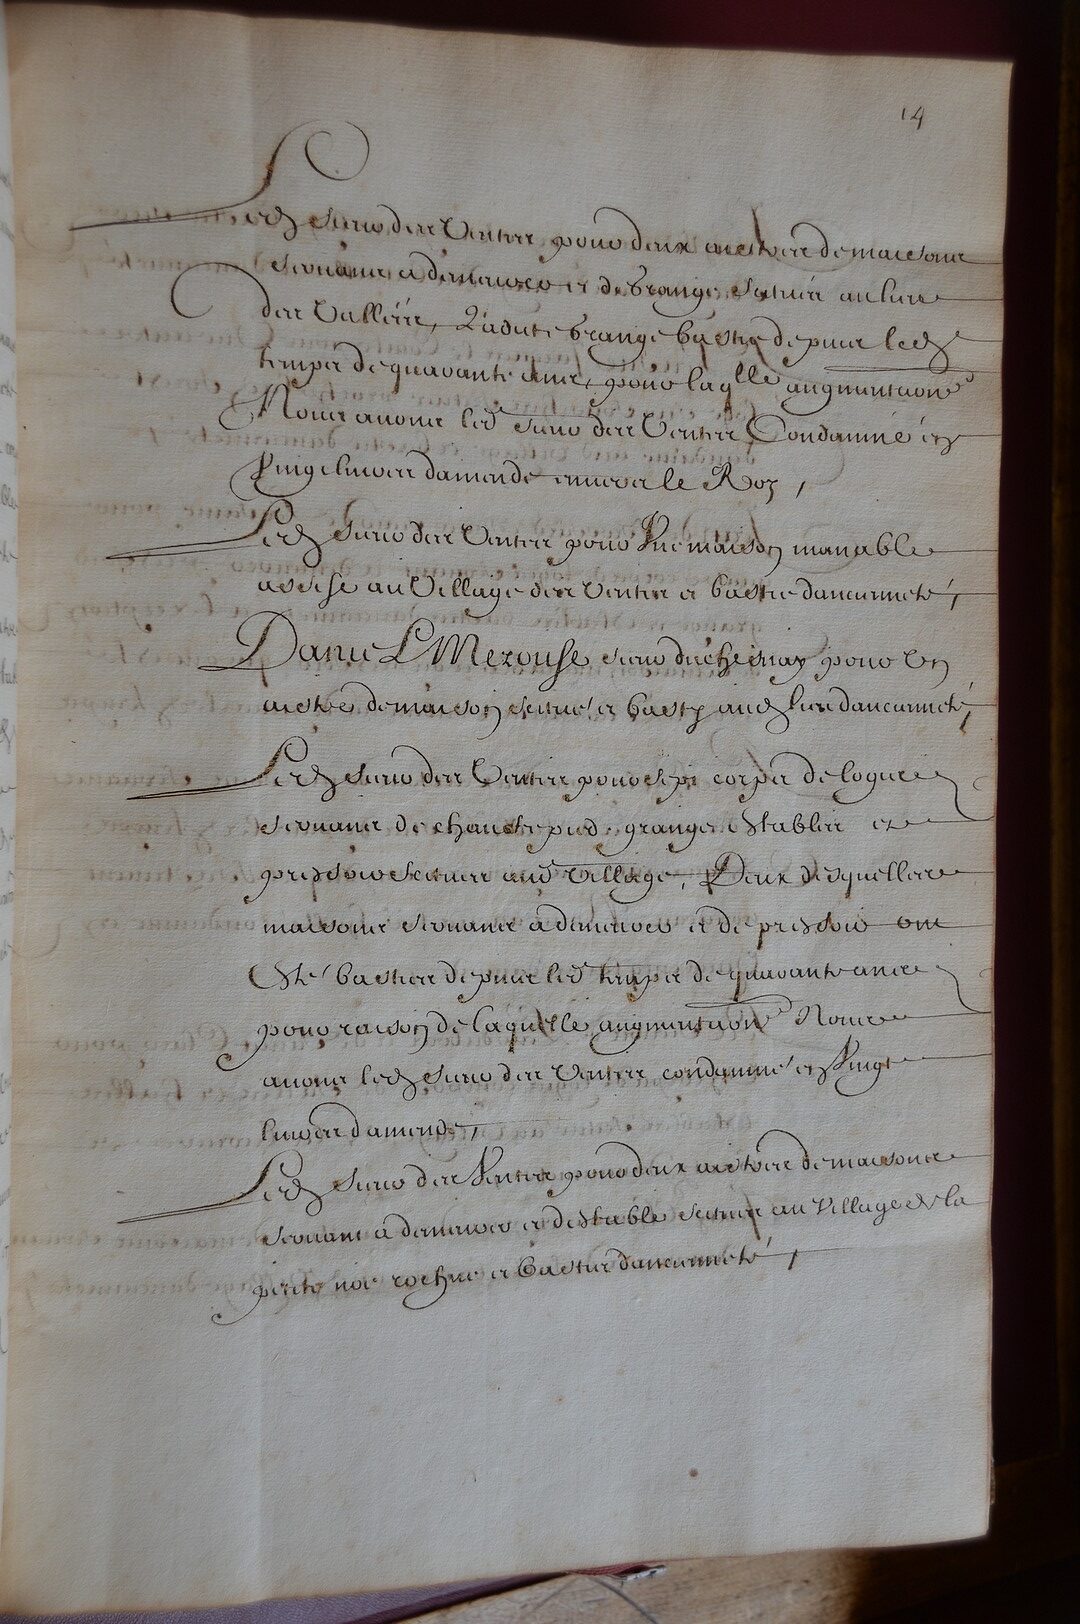 14
Led Sieur des Ventes pour deux aistres de maisons
servans a demeurer et de Grange scituez au lieu
des Vallées, Ladite Grange bastie depuis led
temps de quarante ans, pour laqlle augmentaon
Nous avons led Sieur des Ventes Condamné en
Vingt livres damende envers le Roy,
Led Sieur des Ventes pour Une maison manable
assise au Village des Ventes et bastie dancienneté,
Daniel Merouse sieur du chesnay pour Un
aistre de maison scitué et basty aud lieu danciennete,
Led Sieur des Ventes pour sept corps de logis
servans de chaufepied, granges Estables et
pressoir scituez aud Village, Deux desquelles
maisons servans a demeurer et de pressoir ont
Esté basties depuis led temps de quarante ans
pour raison de laquelle augmentaon Nous
avons led Sieur des Ventes condamné en Vingt
livres damende,
Led Sieur des Ventes pour deux aistres de maisons
servans a demeurer et destable scituez au Village de la
petite noe et basties danciennete,